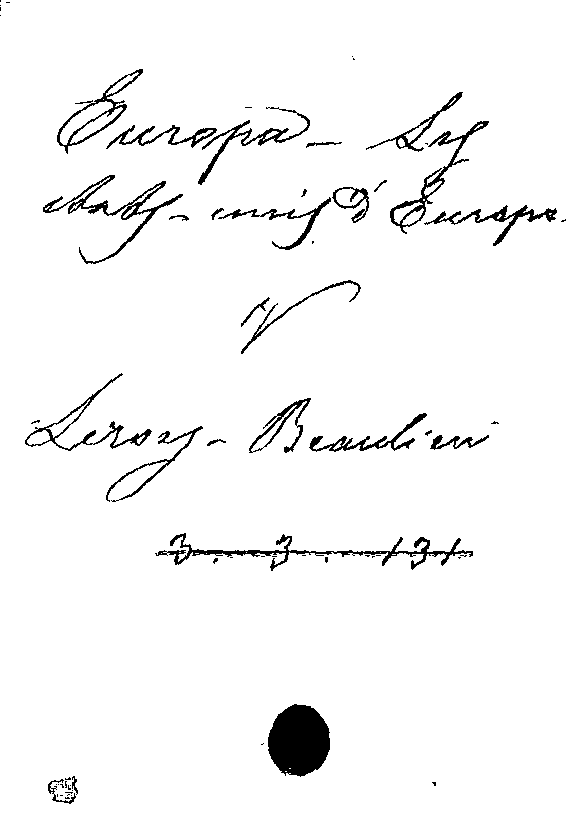 Europa - Les
états-unis d'Europe
V
Leroy-Beaulieu
3. 3. 131